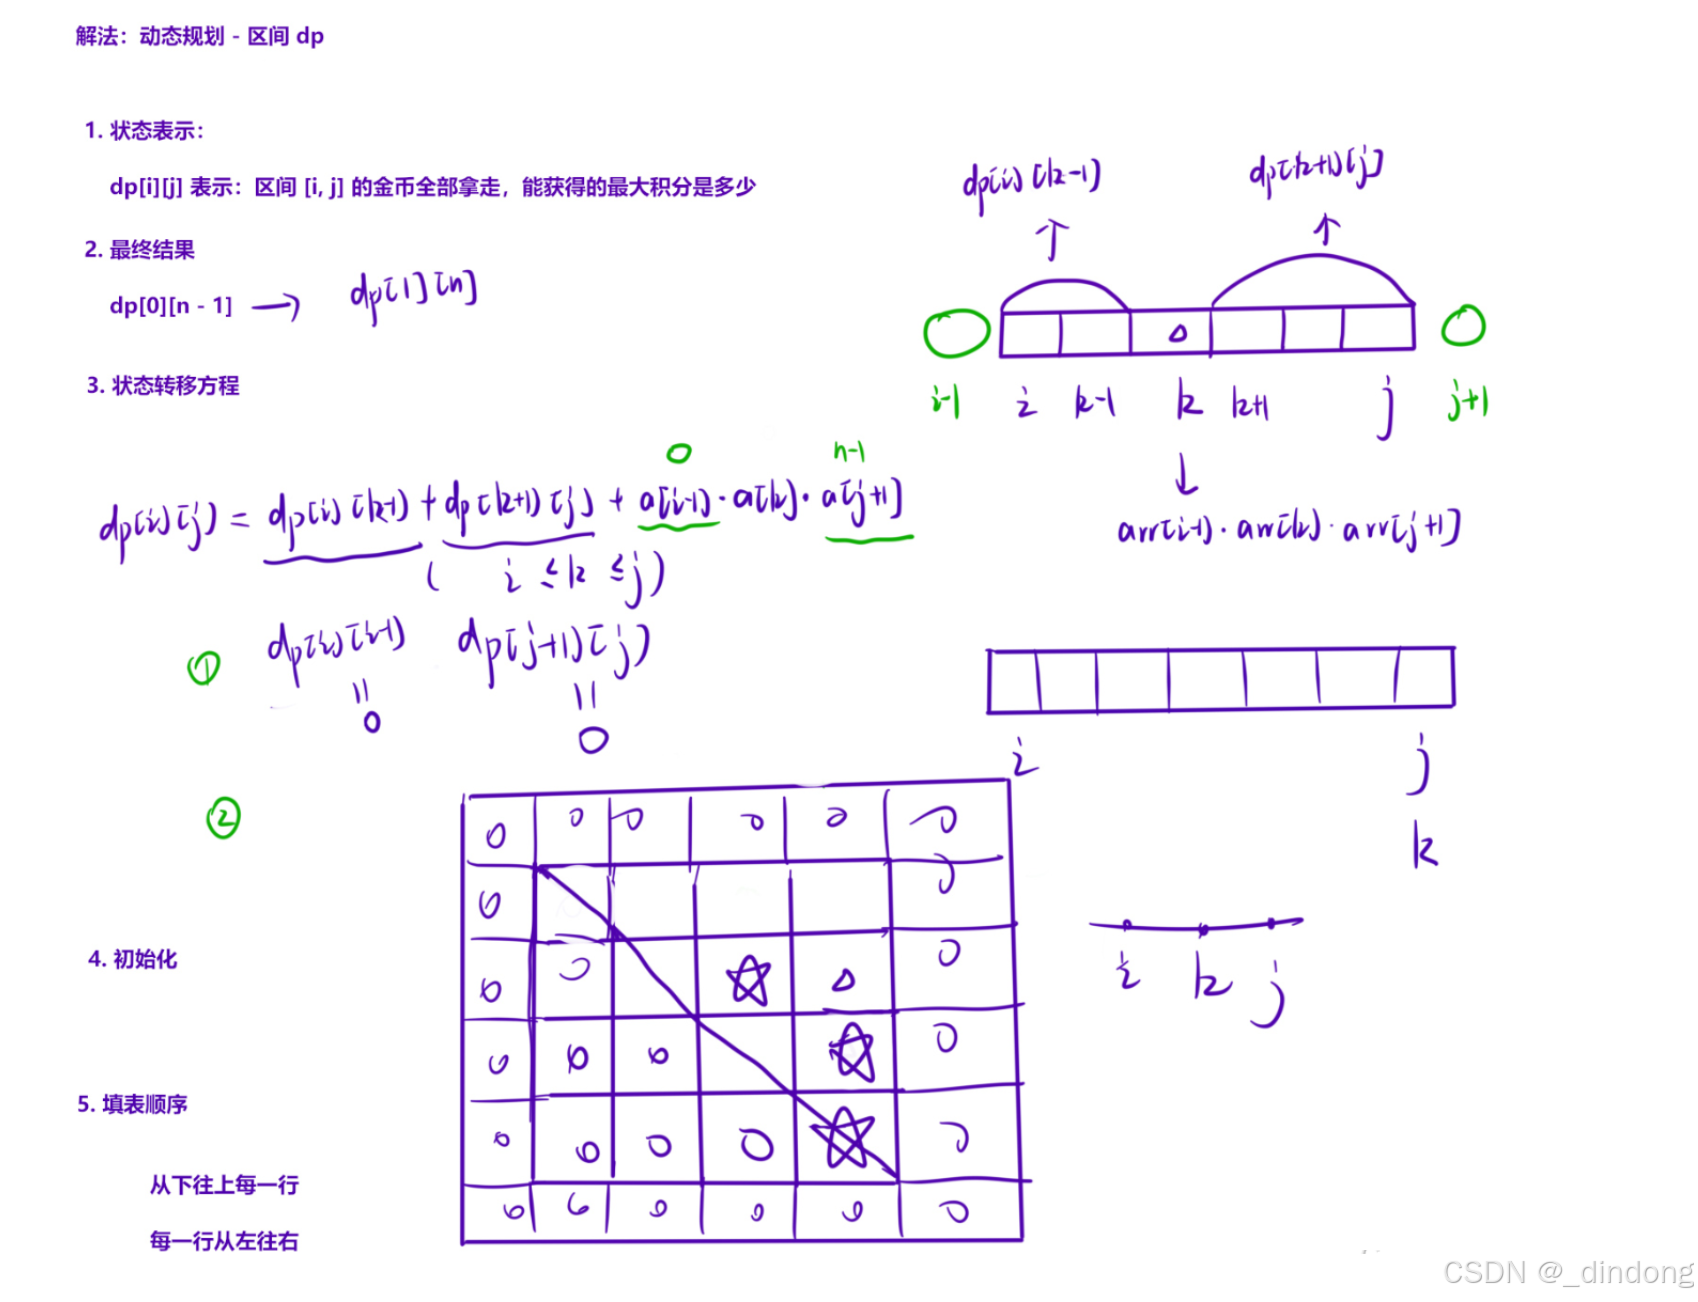 解法：动态规划 - 区间 dp
1. 状态表示：
dp[i][j] 表示：区间 [i, j] 的金币全部拿走，能获得的最大积分是多少
2. 最终结果
dp[0][n - 1] → dp[1][n]
3. 状态转移方程
dp[i][k-1] dp[k+1][j]
i-1 i k-1 k k+1 j j+1
arr[i-1]·arr[k]·arr[j+1]
0 n-1
dp[i][j] = dp[i][k-1] + dp[k+1][j] + a[i-1]·a[k]·a[j+1]
( i ≤ k ≤ j )
① dp[i][i-1] dp[j+1][j]
= =
0 0
i j
k
②
0 0 0 0 0 0
0 0
0 0 △ 0
0 0 0 0
0 0 0 0 0
0 0 0 0 0 0
i k j
4. 初始化
5. 填表顺序
从下往上每一行
每一行从左往右
CSDN @_dindong